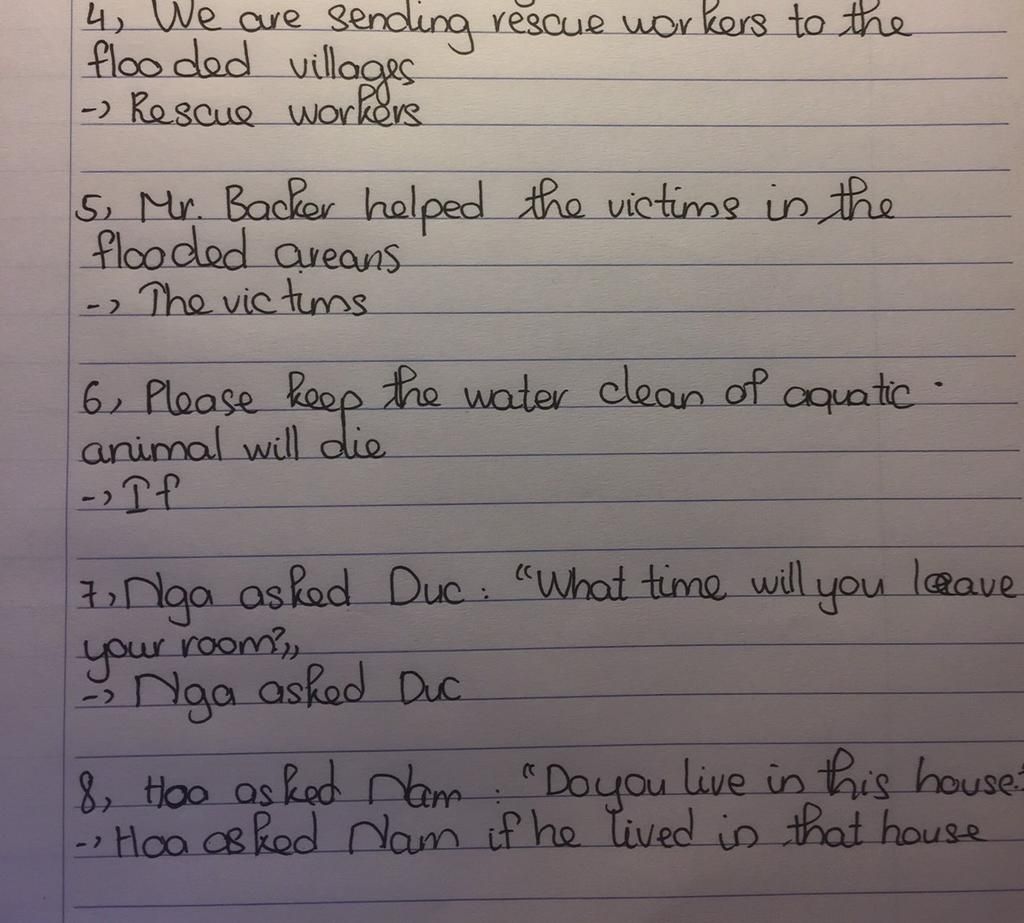 4, We are sending rescue workers to the
flooded villages
-> Rescue workers
5, Mr. Backer helped the victims in the
flooded areans
-> The victims
6, Please keep the water clean of aquatic
animal will die
-> If
7, Nga asked Duc: "What time will you leave
your room?"
-> Nga asked Duc
8, Hoa asked Nam: "Do you live in this house?
-> Hoa asked Nam if he lived in that house